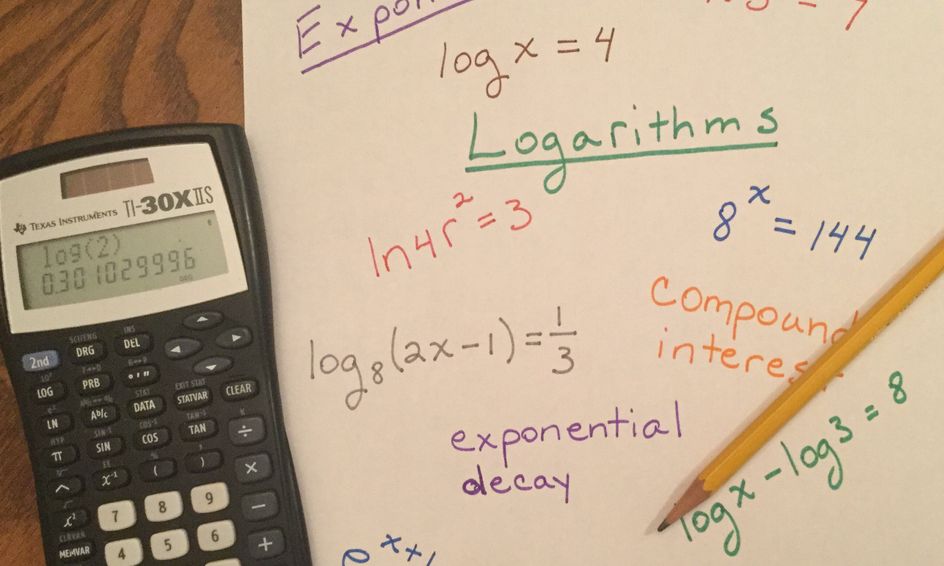 log x = 4
Logarithms
ln4r² = 3
8ˣ = 144
log₈(2x-1) = 1/3
compound
interest
exponential
decay
logx - log3 = 8
TEXAS INSTRUMENTS TI-30X IIS
log(2)
0.301029996
DEG
2nd DRG DEL
LOG PRB ° ' "
LN Ab/c DATA STATVAR CLEAR
π SIN COS TAN ÷
^ x⁻¹ ( ) ×
x² 7 8 9 −
MEMVAR 4 5 6 +